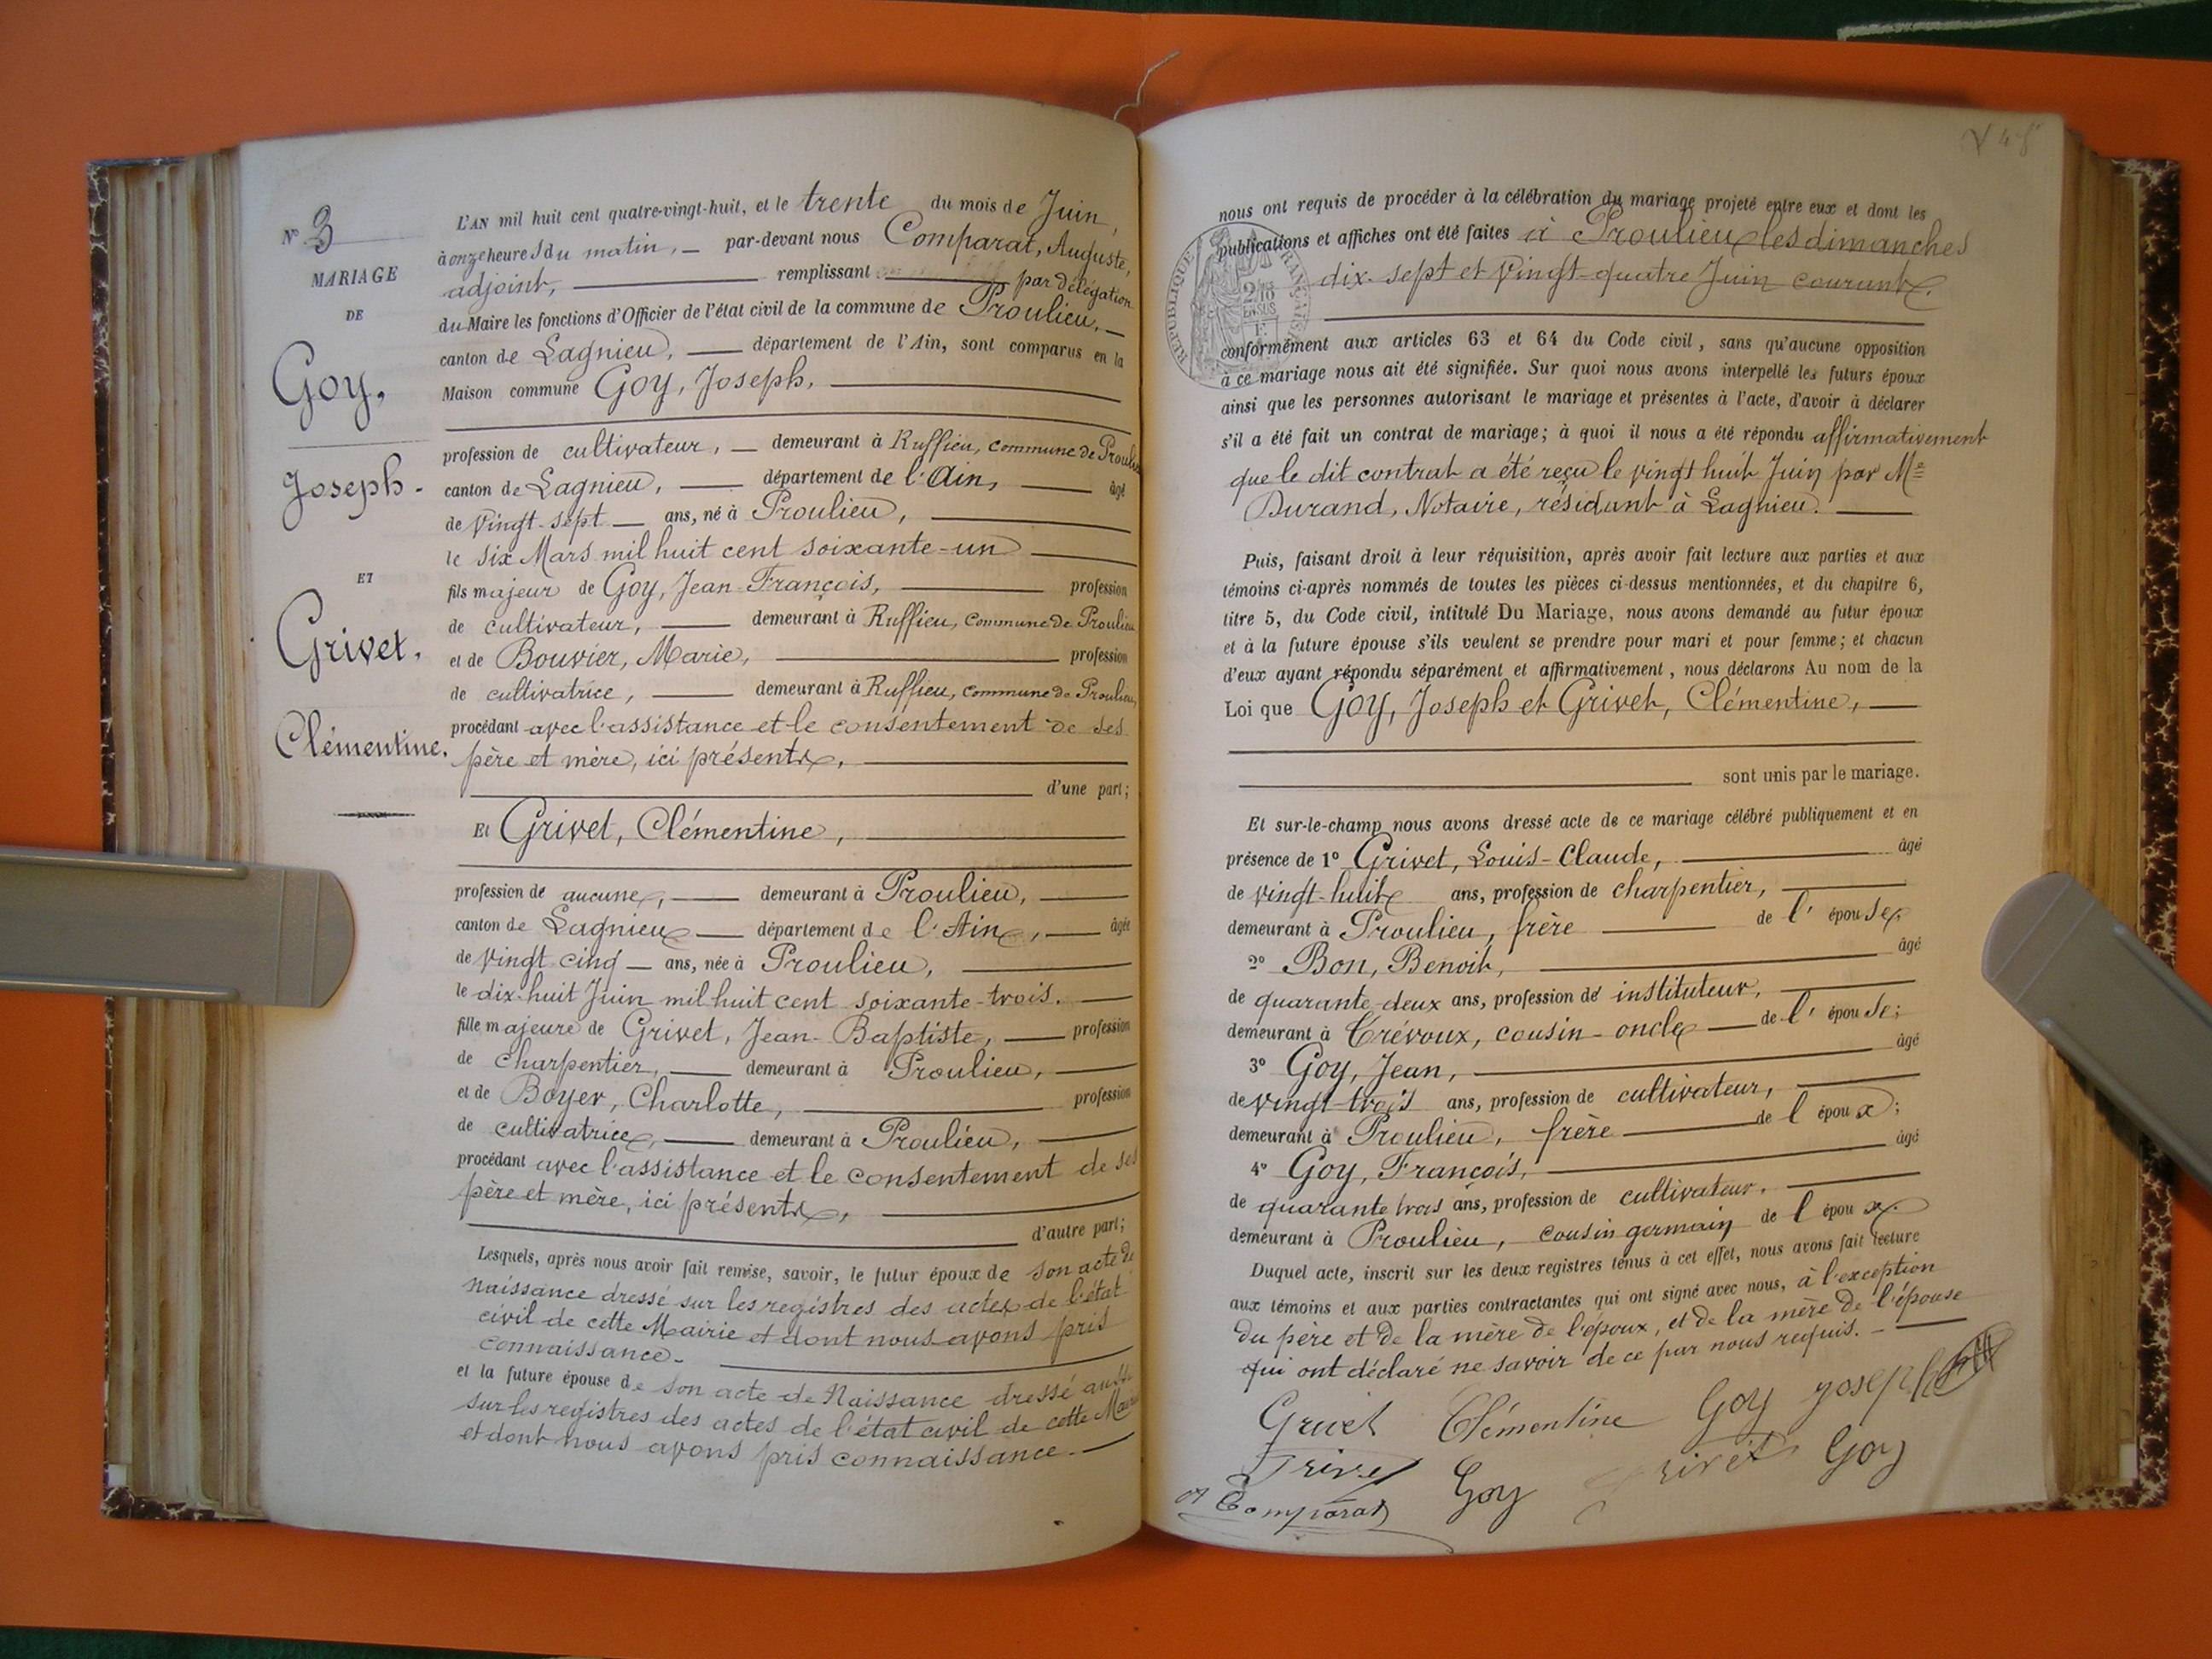 N° 3
MARIAGE
DE
Goy,
Joseph.
ET
Grivet,
Clémentine.
L'AN mil huit cent quatre-vingt-huit, et le trente du mois de Juin,
à onze heures du matin, par-devant nous Comparat, Auguste,
adjoint, remplissant par délégation
du Maire les fonctions d'Officier de l'état civil de la commune de Proulieu,
canton de Lagnieu, département de l'Ain, sont comparus en la
Maison commune Goy, Joseph,
profession de cultivateur, demeurant à Ruffieu, commune de Proulieu
canton de Lagnieu, département de l'Ain, âgé
de vingt-sept ans, né à Proulieu,
le six Mars mil huit cent soixante-un
fils majeur de Goy, Jean-François, profession
de cultivateur, demeurant à Ruffieu, commune de Proulieu
et de Bouvier, Marie, profession
de cultivatrice, demeurant à Ruffieu, commune de Proulieu,
procédant avec l'assistance et le consentement de ses
père et mère, ici présents,
d'une part;
Et Grivet, Clémentine,
profession de aucune, demeurant à Proulieu,
canton de Lagnieu département de l'Ain, âgée
de vingt cinq ans, née à Proulieu,
le dix-huit Juin mil huit cent soixante-trois.
fille majeure de Grivet, Jean-Baptiste, profession
de charpentier, demeurant à Proulieu,
et de Boyer, Charlotte, profession
de cultivatrice, demeurant à Proulieu,
procédant avec l'assistance et le consentement de ses
père et mère, ici présents,
d'autre part;
Lesquels, après nous avoir fait remise, savoir, le futur époux de son acte de
Naissance dressé sur les registres des actes de l'état
civil de cette Mairie et dont nous avons pris
connaissance.
et la future épouse de son acte de Naissance dressé aussi
sur les registres des actes de l'état civil de cette Mairie
et dont nous avons pris connaissance.
nous ont requis de procéder à la célébration du mariage projeté entre eux et dont les
publications et affiches ont été faites à Proulieu les dimanches
dix-sept et vingt-quatre Juin courant.
RÉPUBLIQUE FRANÇAISE
2/10
EN SUS
conformément aux articles 63 et 64 du Code civil, sans qu'aucune opposition
à ce mariage nous ait été signifiée. Sur quoi nous avons interpellé les futurs époux
ainsi que les personnes autorisant le mariage et présentes à l'acte, d'avoir à déclarer
s'il a été fait un contrat de mariage; à quoi il nous a été répondu affirmativement
que le dit contrat a été reçu le vingt huit Juin par Me
Durand, Notaire, résidant à Lagnieu.
Puis, faisant droit à leur réquisition, après avoir fait lecture aux parties et aux
témoins ci-après nommés de toutes les pièces ci-dessus mentionnées, et du chapitre 6,
titre 5, du Code civil, intitulé Du Mariage, nous avons demandé au futur époux
et à la future épouse s'ils veulent se prendre pour mari et pour femme; et chacun
d'eux ayant répondu séparément et affirmativement, nous déclarons Au nom de la
Loi que Goy, Joseph et Grivet, Clémentine,
sont unis par le mariage.
Et sur-le-champ nous avons dressé acte de ce mariage célébré publiquement et en
présence de 1° Grivet, Louis-Claude, âgé
de vingt-huit ans, profession de charpentier,
demeurant à Proulieu, frère de l'épouse,
2° Bon, Benoit, âgé
de quarante-deux ans, profession de instituteur,
demeurant à Trévoux, cousin-oncle de l'épouse;
3° Goy, Jean, âgé
de vingt-trois ans, profession de cultivateur,
demeurant à Proulieu, frère de l époux;
4° Goy, François, âgé
de quarante trois ans, profession de cultivateur.
demeurant à Proulieu, cousin germain de l époux.
Duquel acte, inscrit sur les deux registres tenus à cet effet, nous avons fait lecture
aux témoins et aux parties contractantes qui ont signé avec nous, à l'exception
du père et de la mère de l'époux, et de la mère de l'épouse
qui ont déclaré ne savoir de ce par nous requis.
Grivet Clémentine Goy Joseph
Grivet Goy Grivet Goy
Comparat